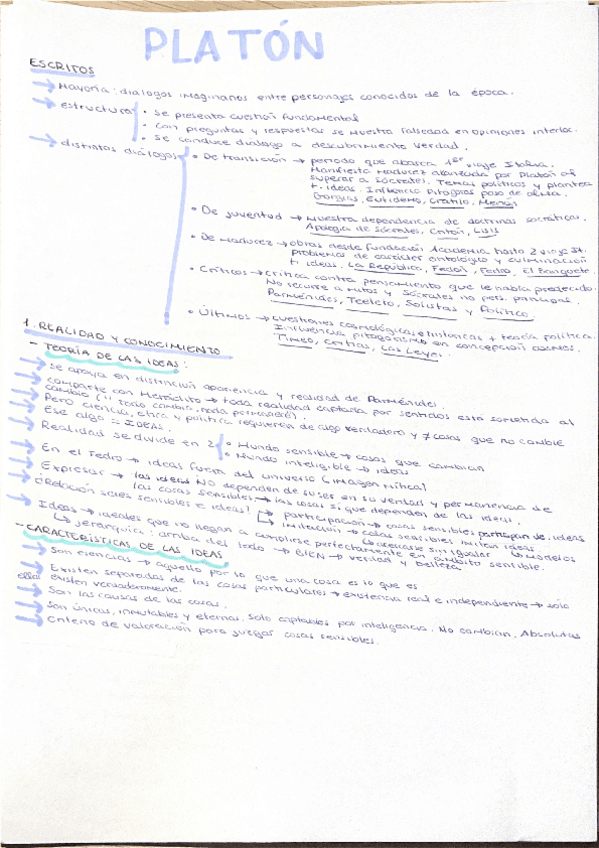 PLATÓN
ESCRITOS
→ Mayoría: diálogos imaginarios entre personajes conocidos de la época.
→ estructura • Se presenta cuestión fundamental
• Con preguntas y respuestas se muestra falsedad en opiniones interloc.
• Se conduce diálogo a descubrimiento verdad.
→ distintos diálogos • De transición → periodo que abarca 1er viaje Italia.
Manifiesta madurez alcanzada por Platón al
superar a Sócrates. Temas políticos y plantea
t. ideas. Influencia pitagóricos
Gorgias, Eutidemo, Cratilo, Menón
• De juventud → Muestra dependencia de doctrinas socráticas.
Apología de Sócrates, Critón, Lisis
• De madurez → obras desde fundación Academia hasta 2º viaje It.
problemas de carácter ontológico y culminación
t. ideas. La República, Fedón, Fedro, El Banquete
• Críticos → crítica contra pensamiento que le había precedido.
No recurre a mitos y Sócrates no pers. principal.
Parménides, Teeteto, Sofistas y Político
• Últimos → cuestiones cosmológicas e históricas + teoría política.
Influencia pitagorismo en concepción
Timeo, Critias, Las Leyes.
1. REALIDAD Y CONOCIMIENTO
- TEORÍA DE LAS IDEAS:
→ Se apoya en distinción apariencia y realidad de Parménides.
→ Comparte con Heráclito → toda realidad captada por sentidos está sometida al
cambio (" todo cambia, nada permanece).
→ Pero ciencia, ética y política requieren de algo verdadero y cosas que no cambie
→ Ese algo = IDEAS.
→ Realidad se divide en 2 • Mundo sensible → cosas que cambian
• Mundo inteligible → ideas
→ En el Fedro → ideas fuera del universo (imagen mítica)
→ Expresar → las ideas NO dependen de en su verdad y permanencia de
las cosas sensibles → las cosas sí que dependen de las ideas.
→ ¿Relación seres sensibles e ideas? → participación → cosas sensibles participan de ideas
→ imitación → cosas sensibles imitan ideas.
→ Ideas → ideales que no llegan a cumplirse perfectamente en ámbito sensible.
→ jerarquía: arriba del todo → BIEN → verdad y belleza
- CARACTERÍSTICAS DE LAS IDEAS
→ Son esencias → aquello por lo que una cosa es lo que es
→ Existen separadas de las cosas particulares → existencia real e independiente → sólo
ellas existen verdaderamente.
→ Son las causas de las cosas.
→ Son únicas, inmutables y eternas. Solo captables por inteligencia. No cambian. Absolutas
→ Criterio de valoración para juzgar cosas sensibles.